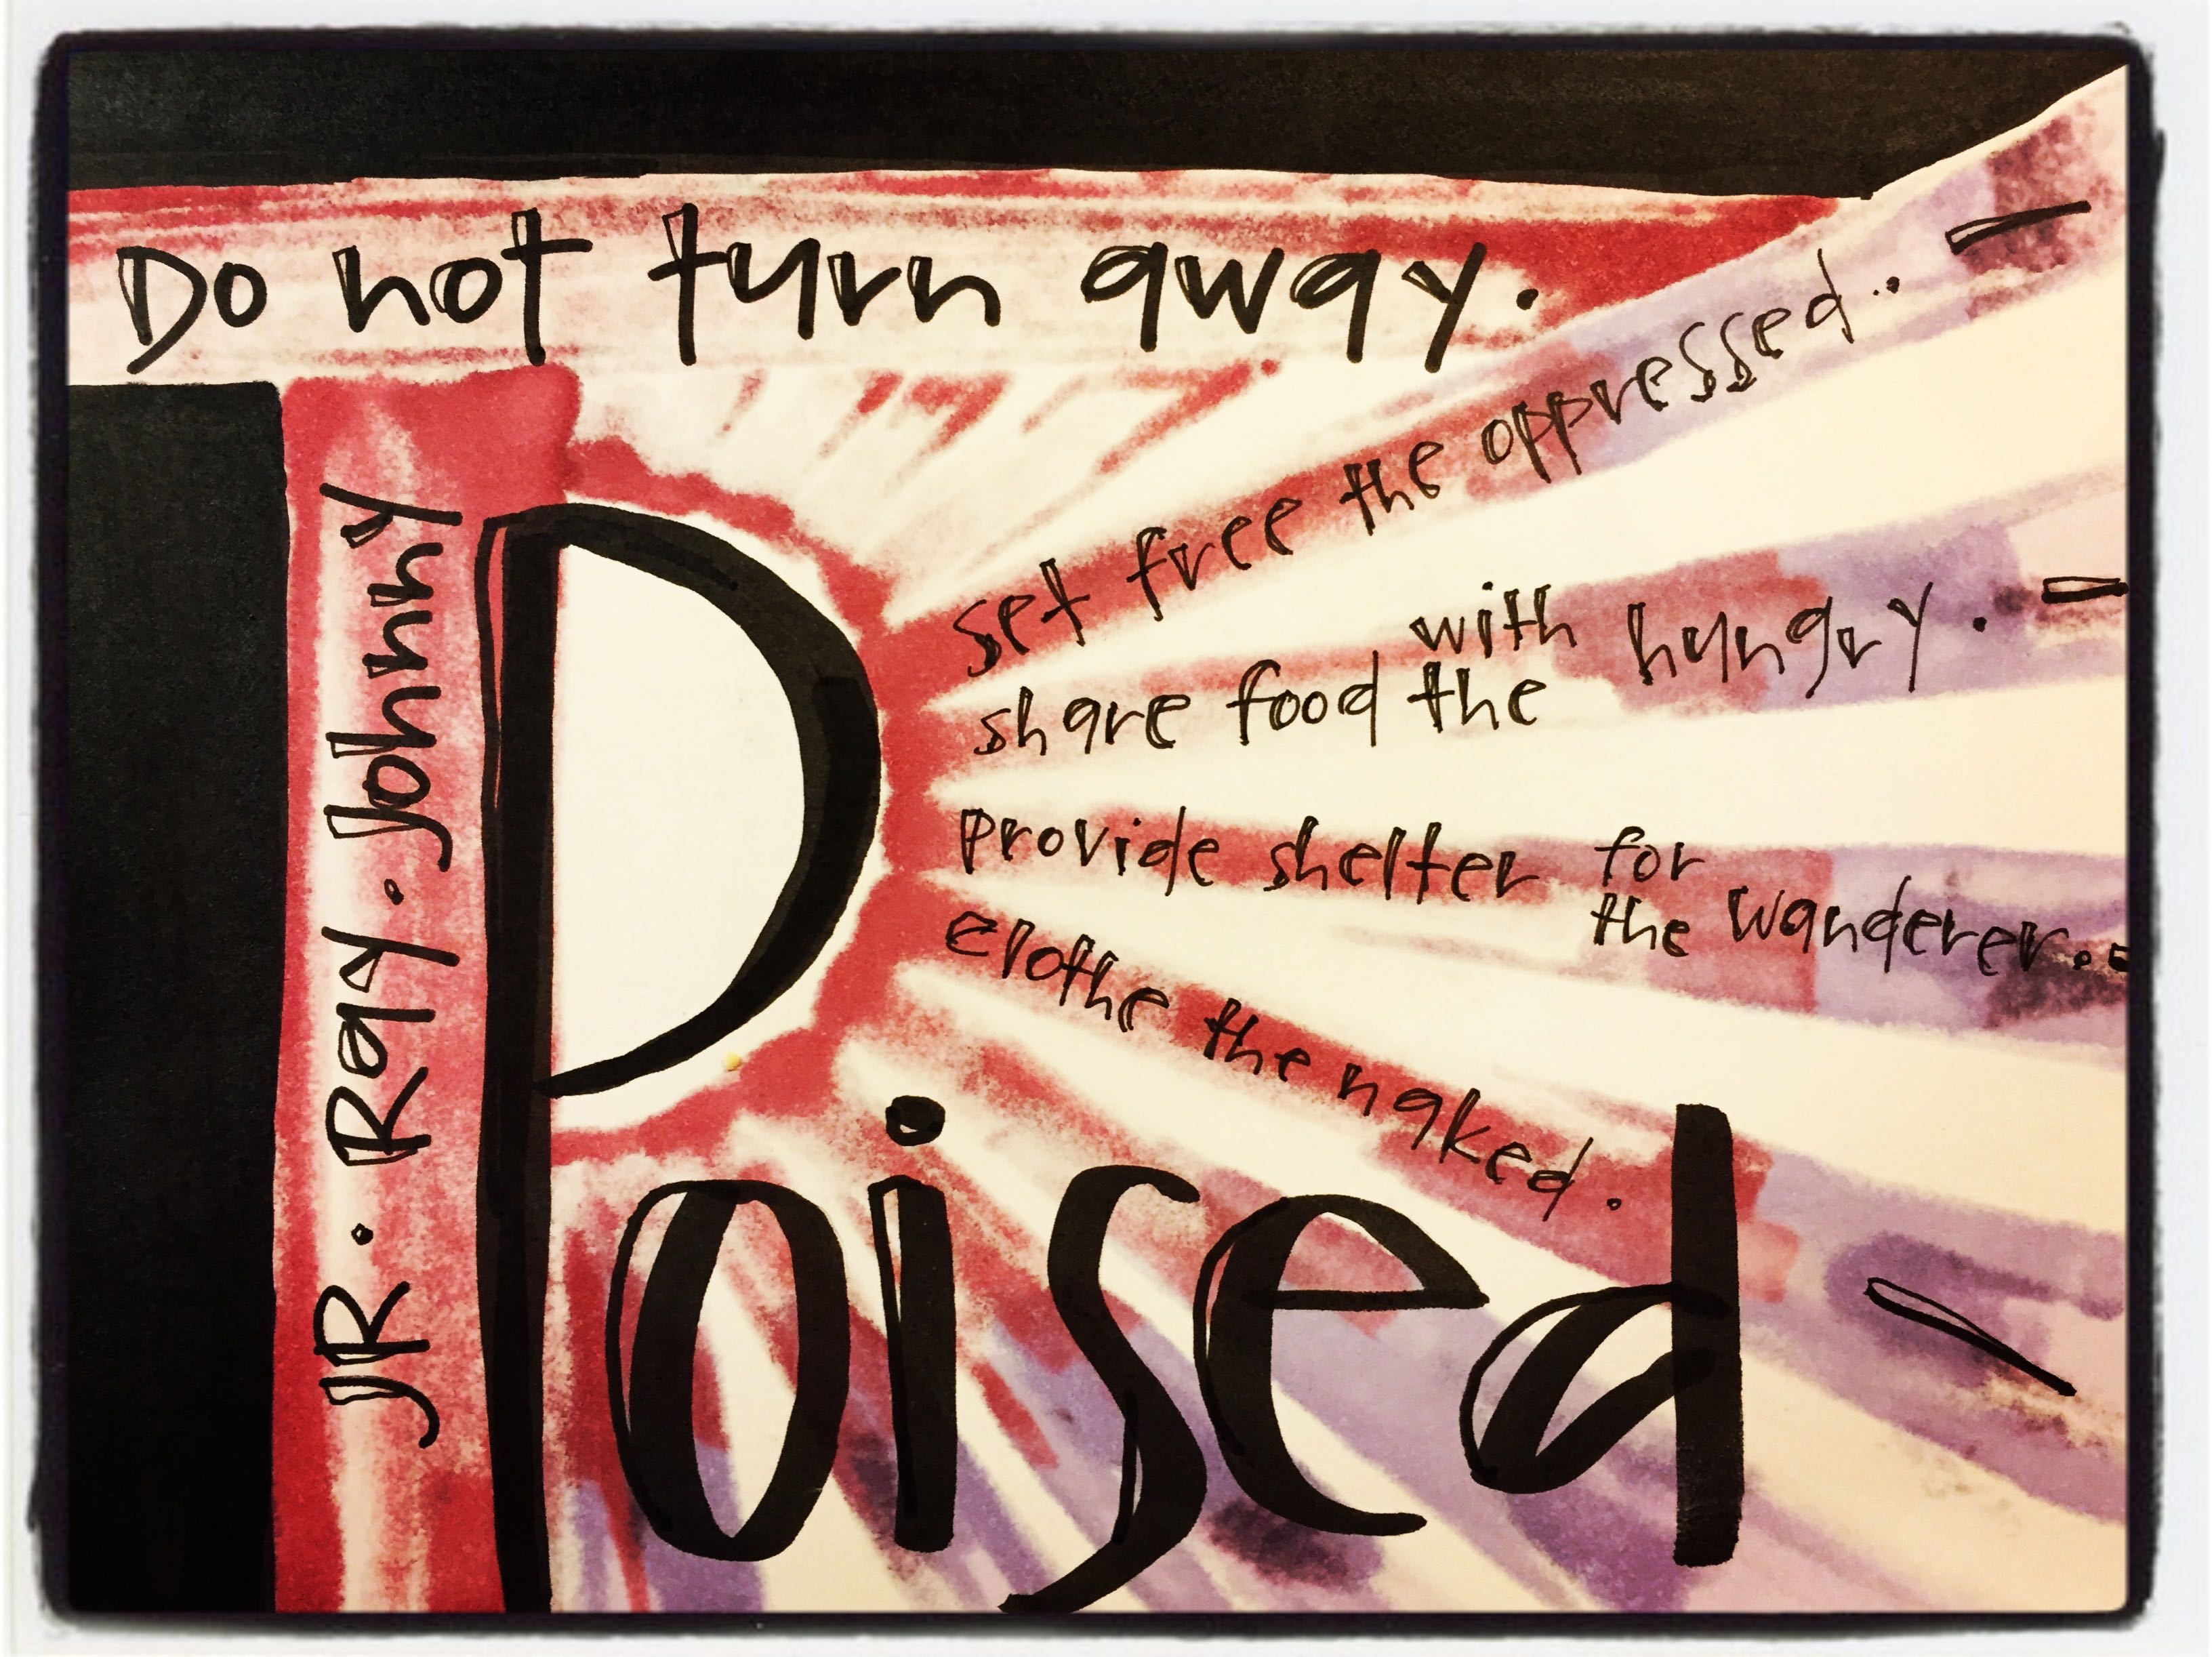 Do not turn away.
JR. Ray. Johnny
set free the oppressed..
share food with the hungry.
provide shelter for the wanderer.
clothe the naked.
Poised